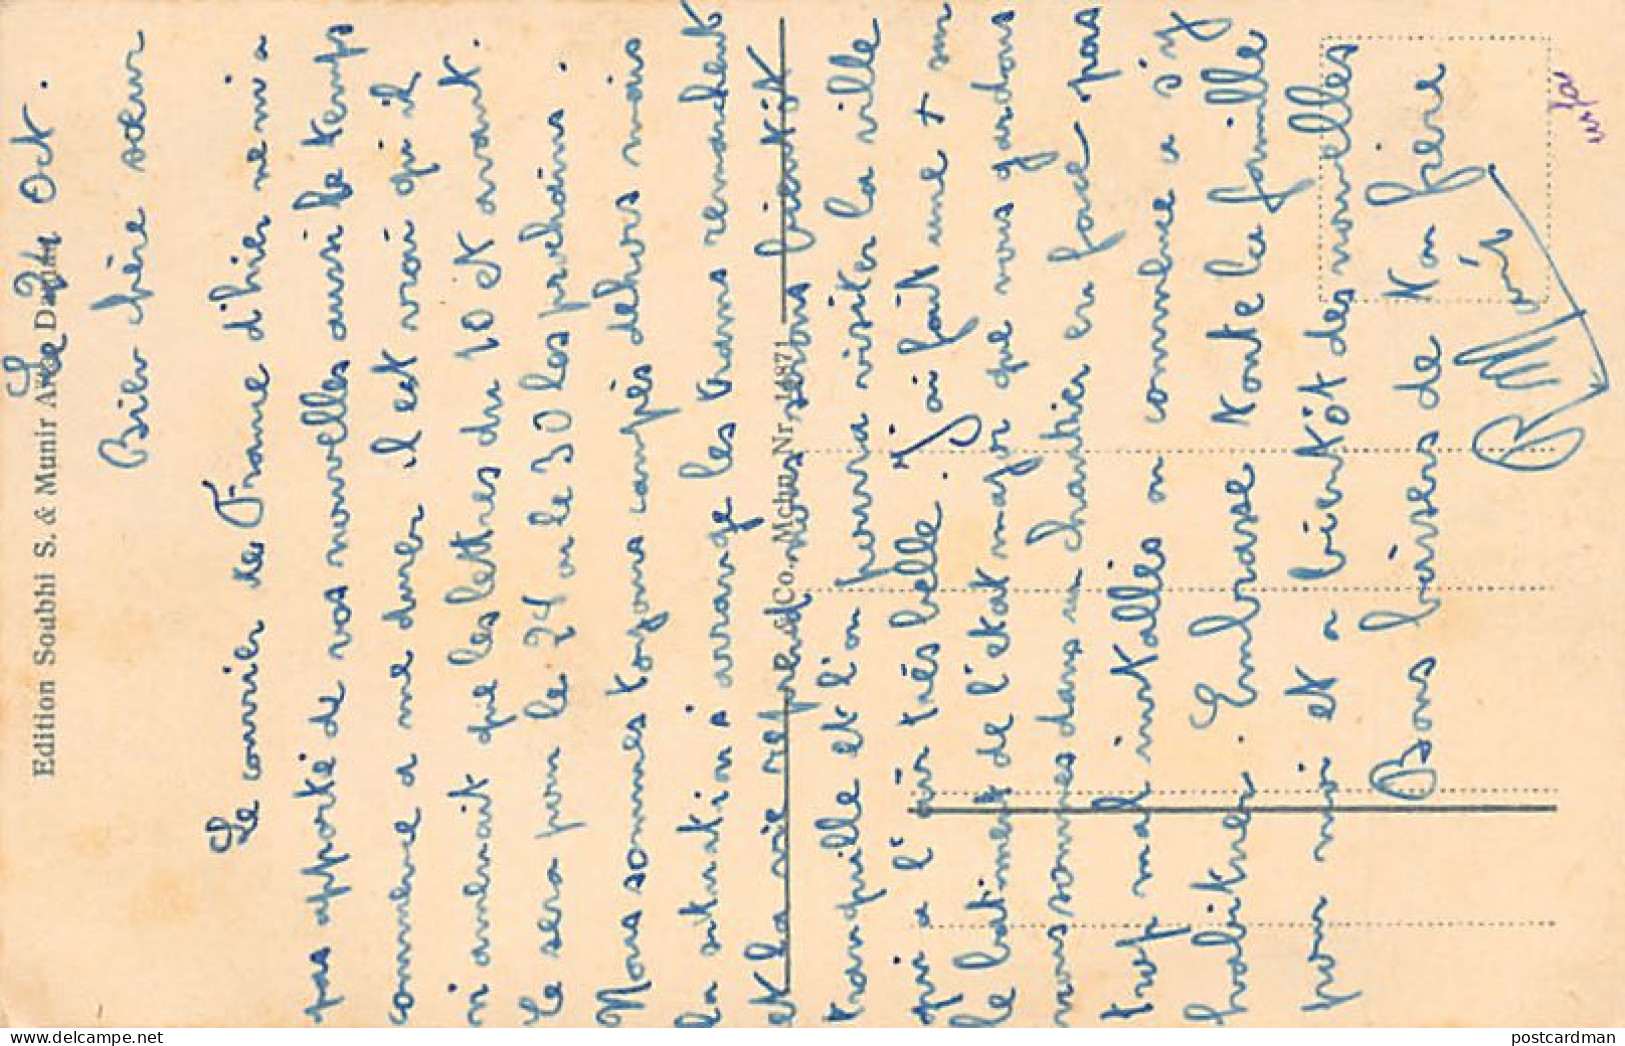 Le 24 Oct.
Bien chère sœur
Le courrier de France d'hier ne m'a
pas apporté de vos nouvelles aussi le temps
commence a me durer il est vrai qu'il
n'amenait que les lettres du 10 et avant.
Ce sera pour le 27 ou le 30 les prochains.
Nous sommes toujours campés dehors mais
la situation s'arrange les trams remarchent
et la vie reprend nous serons bientôt
tranquille et l'on pourra visiter la ville
qui a l'air très belle. J'ai fait une + sur
le batiment de l'etat major que nous gardons
nous sommes dans un chantier en face pas
trop mal installés on commence a s'y
habituer. Embrasse toute la famille
pour moi et a bientôt des nouvelles
Bons baisers de ton frère
Edition Soubhi S. & Munir Aïta Damas
& Co., Mchn. Nr. 14871
postcardman